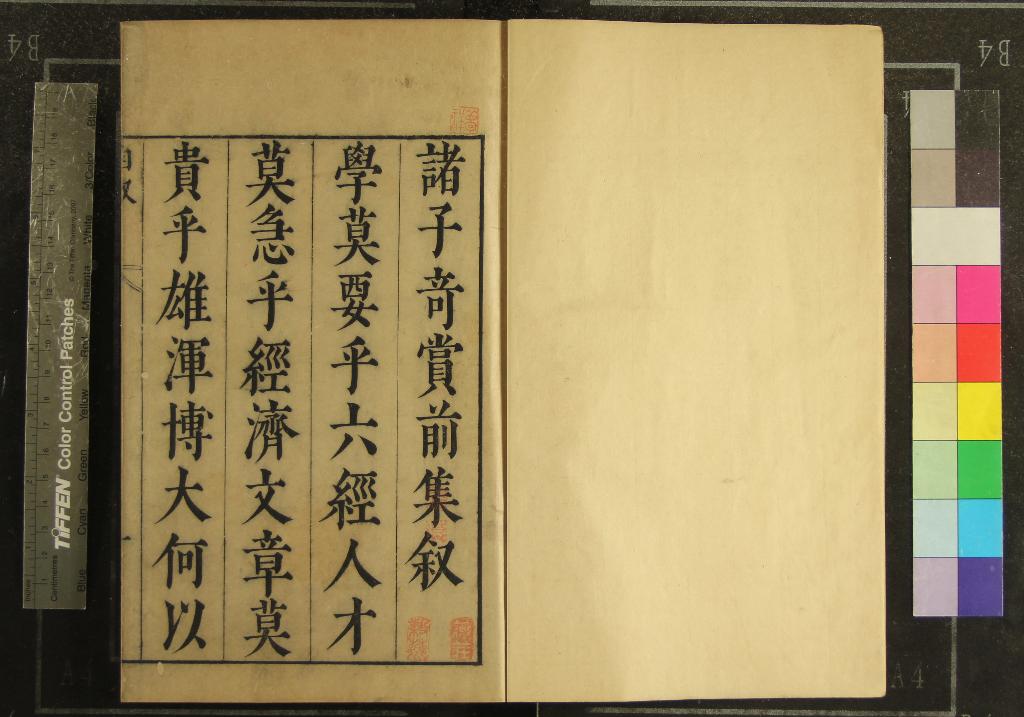 諸子奇賞前集叙
學莫要乎六經人才
莫急乎經濟文章莫
貴乎雄渾博大何以
B4
B4
A4
A4
TIFFEN Color Control Patches
© The Tiffen Company, 2007
Inches
Centimetres
Blue
Cyan
Green
Yellow
Red
Magenta
White
3/Color
Black